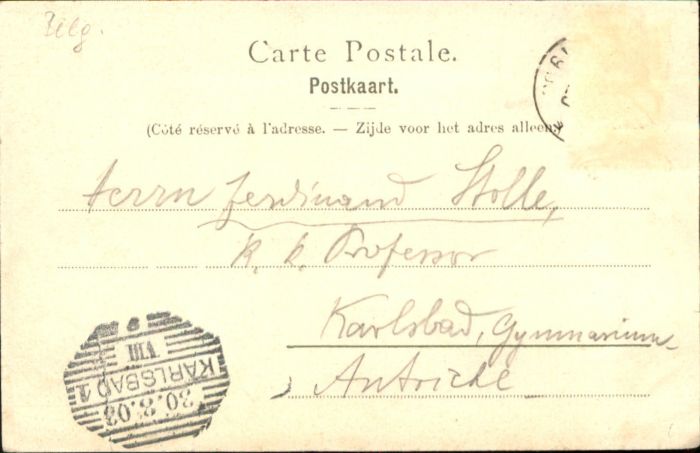 Belg.
Carte Postale.
Postkaart.
(Côté réservé à l'adresse. — Zijde voor het adres alleen)
Herrn Ferdinand Stolle,
k. k. Professor
Karlsbad, Gymnasium
Autriche
KARLSBAD 1
30.8.03
VIII